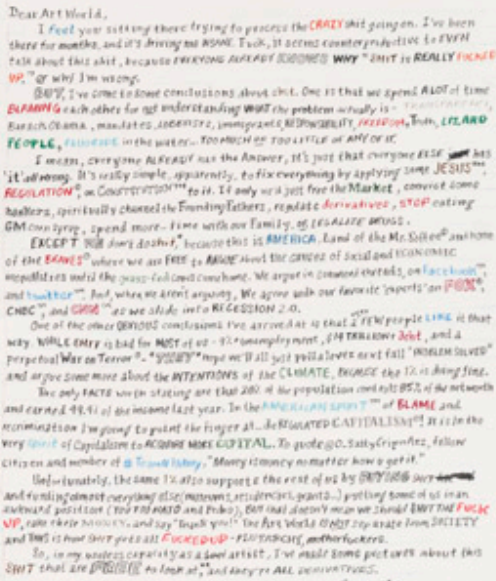 Dear Art World,
I feel you sitting there trying to process the CRAZY shit going on. I've been
there for months, and it's driving me INSANE. Fuck, it seems counterproductive to EVEN
talk about this shit, because EVERYONE ALREADY KNOWS WHY "SHIT IS REALLY FUCKED
UP," or why I'm wrong.
BUT, I've come to some conclusions about shit. One is that we spend A LOT of time
BLAMING each other for not understanding WHAT the problem actually is - TRANSPARENCY,
Barack Obama, mandates, LOBBYISTS, immigrants, RESPONSIBILITY, FREEDOM, Truth, LIZARD
PEOPLE, FLUORIDE in the water... TOO MUCH OR TOO LITTLE OF ANY OF IT.
I mean, everyone ALREADY has the Answer, it's just that everyone ELSE has
"it" all wrong. It's really simple, apparently, to fix everything by applying some JESUS™
REGULATION®, or CONSTITUTION™ to it. If only we'd just free the Market, convict some
bankers, spiritually channel the Founding Fathers, regulate derivatives, STOP eating
GM corn syrup, spend more time with our Family, or LEGALIZE DRUGS.
EXCEPT WE don't do shit, because this is AMERICA, Land of the Mr. Coffee® and home
of the BRAVES® where we are FREE to ARGUE about the causes of social and ECONOMIC
inequalities until the grass-fed cows come home. We argue in comment threads, on facebook™,
and twitter™. And, when we aren't arguing, We agree with our favorite 'experts' on FOX®,
CNBC™, and CNN™ as we slide into RECESSION 2.0.
One of the other OBVIOUS conclusions I've arrived at is that a FEW people LIKE it that
way. WHILE ENTRY is bad for MOST of us - 9% unemployment, TRILLION debt, and a
perpetual War on Terror® - "THEY" hope we'll all just pull a lever next fall "PROBLEM SOLVED"
and argue some more about the INTENTIONS of the CLIMATE, BECAUSE the 1% is doing fine.
The only FACTS worth stating are that 20% of the population controls 85% of the networth
and earned 49.4% of the income last year. In the AMERICAN SPIRIT™ of BLAME and
recrimination I'm going to point the finger at... deREGULATED CAPITALISM! It is in the
very spirit of Capitalism to REQUIRE MORE CAPITAL. To quote @O.SaltyCrignAtz, fellow
citizen and member of "Money is money no matter how u get it."
Unfortunately, the same 1% also supports the rest of us by BUYING SHIT
and funding almost everything else (museums, residencies, grants...) putting some of us in an
awkward position (YOU TOO MATO and Pablo), BUT that doesn't mean we should SHUT THE FUCK
UP, take their MONEY, and say "thank you!" The Art World IS NOT separate from SOCIETY
and THIS is how SHIT gets all FUCKED UP - PLUTARCHY, motherfuckers.
So, in my useless capacity as a artist, I've made some pictures about this
SHIT that are to look at, and they're ALL DERIVATIVES.